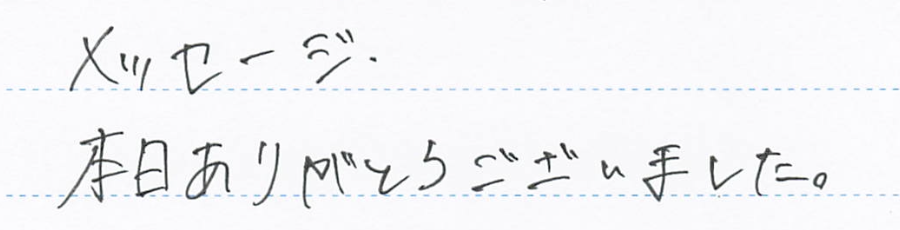 メッセージ.
本日ありがとうございました。